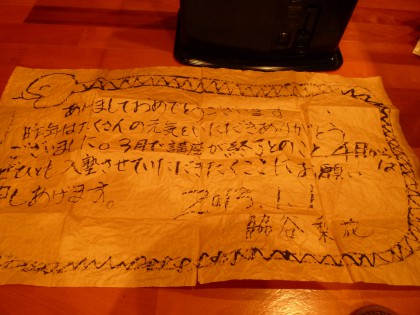 あけましておめでとうございます
昨年はたくさんの元気をいただきありがとう
ございました。3月で講座が終るとのこと、4月からは
ぜひとも入塾させていただきたくここにお願い
申しあげます。
脇谷 梨花